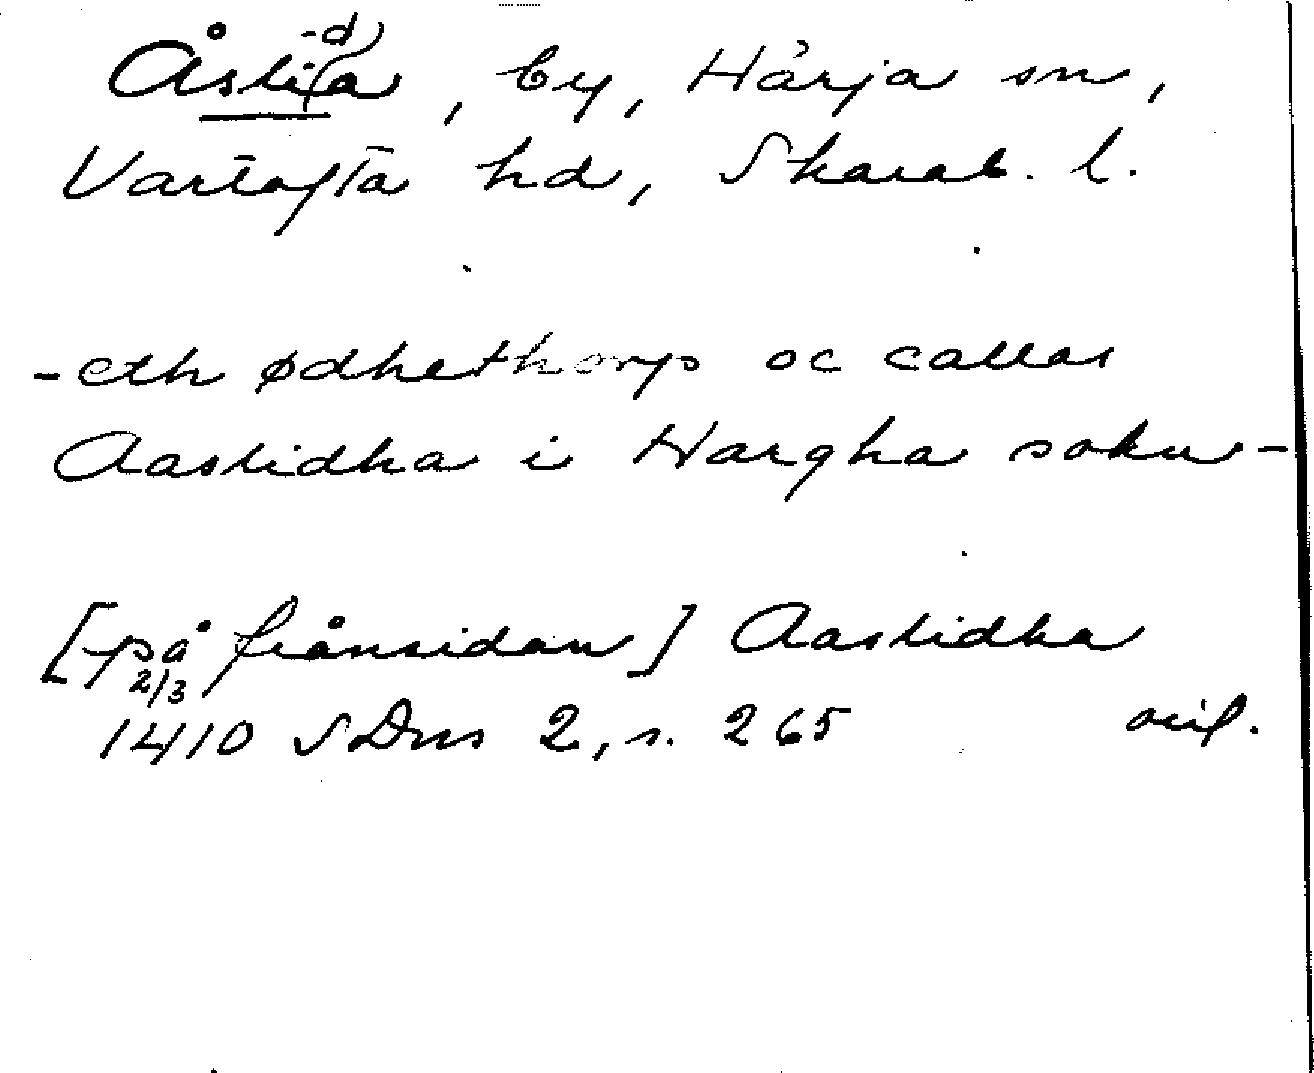 Åsli(-d)a, by, Hårja sn,
Vartofta hd, Skarab. l.
- eth ødhethorp oc callas
Aaslidha i Hargha sokn -
[på frånsidan] Aaslidha
2/3 1410 SDns 2, s. 265 orig.